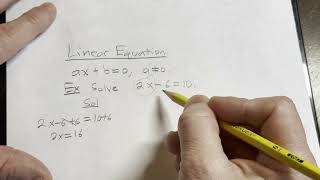 Linear Equation
ax + b = 0, a ≠ 0
Ex Solve 2x - 6 = 10.
Sol
2x - 6 + 6 = 10 + 6
2x = 16